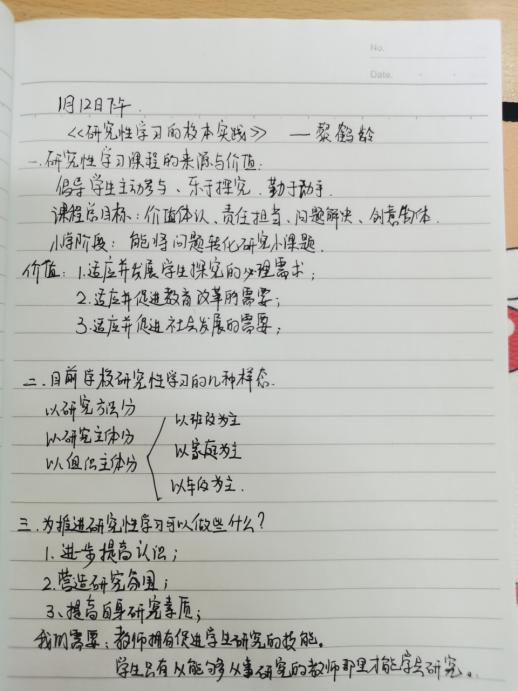 No.
Date.
1月12日下午.
《研究性学习的校本实践》 —黎鹤龄
一.研究性学习课程的来源与价值:
倡导学生主动参与、乐于探究、勤于动手.
课程总目标:价值体认、责任担当、问题解决、创意物体.
小学阶段:能将问题转化研究小课题.
价值:1.适应并发展学生探究的心理需求;
2.适应并促进教育改革的需要;
3.适应并促进社会发展的需要;
二.目前学校研究性学习的几种样态.
以研究方法分
以研究主体分
以组织主体分
以班级为主
以家庭为主
以年级为主.
三.为推进研究性学习可以做些什么?
1.进步提高认识;
2.营造研究氛围;
3、提高自身研究素质;
我们需要:教师拥有促进学生研究的技能。
学生只有从能够从事研究的教师那里才能学会研究。